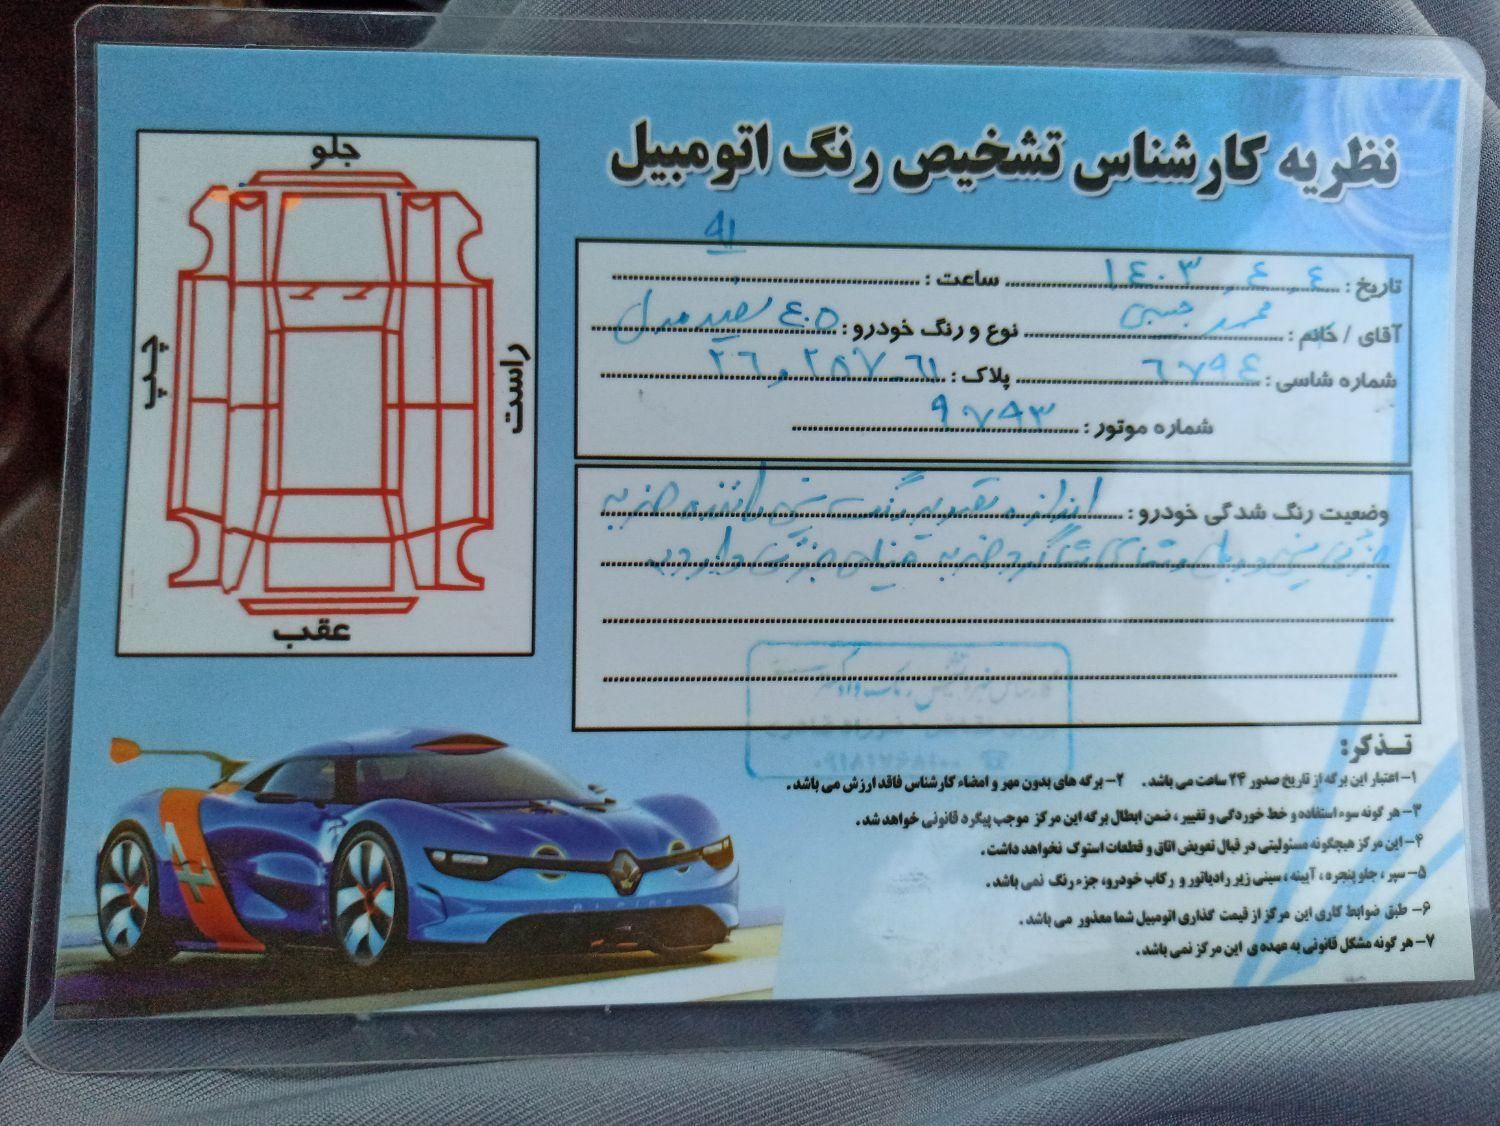 نظریه کارشناس تشخیص رنگ اتومبیل
جلو
چپ
راست
عقب
۹۱
تاریخ : ۱۴۰۳،۴،۴ ساعت :
آقای / خانم : محمد نوع و رنگ خودرو : ۴۰۵ سفید مدل
شماره شاسی : ۶۷۹۴ پلاک :
شماره موتور : ۹۷۹۳
وضعیت رنگ شدگی خودرو : ضربه
جزئی ضربه جزئی دارد
تـذکر:
۱- اعتبار این برگه از تاریخ صدور ۲۴ ساعت می باشد . ۲- برگه های بدون مهر و امضاء کارشناس فاقد ارزش می باشد .
۳- هر گونه سوء استفاده و خط خوردگی و تغییر ، ضمن ابطال برگه این مرکز موجب پیگرد قانونی خواهد شد .
۴- این مرکز هیچگونه مسئولیتی در قبال تعویض اتاق و قطعات استوک نخواهد داشت .
۵- سپر ، جلو پنجره ، آیینه ، سینی زیر رادیاتور و رکاب خودرو، جزء رنگ نمی باشد .
۶- طبق ضوابط کاری این مرکز از قیمت گذاری اتومبیل شما معذور می باشد .
۷- هر گونه مشکل قانونی به عهده ی این مرکز نمی باشد .